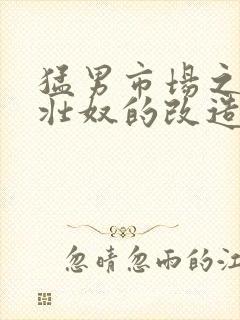 猛男市場之
壯奴的改造
忽晴忽雨的江